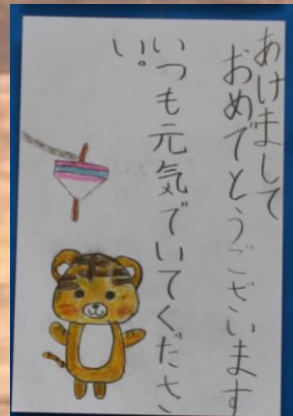 あけまして
おめでとうございます
いつも元気でいてくださ
い。